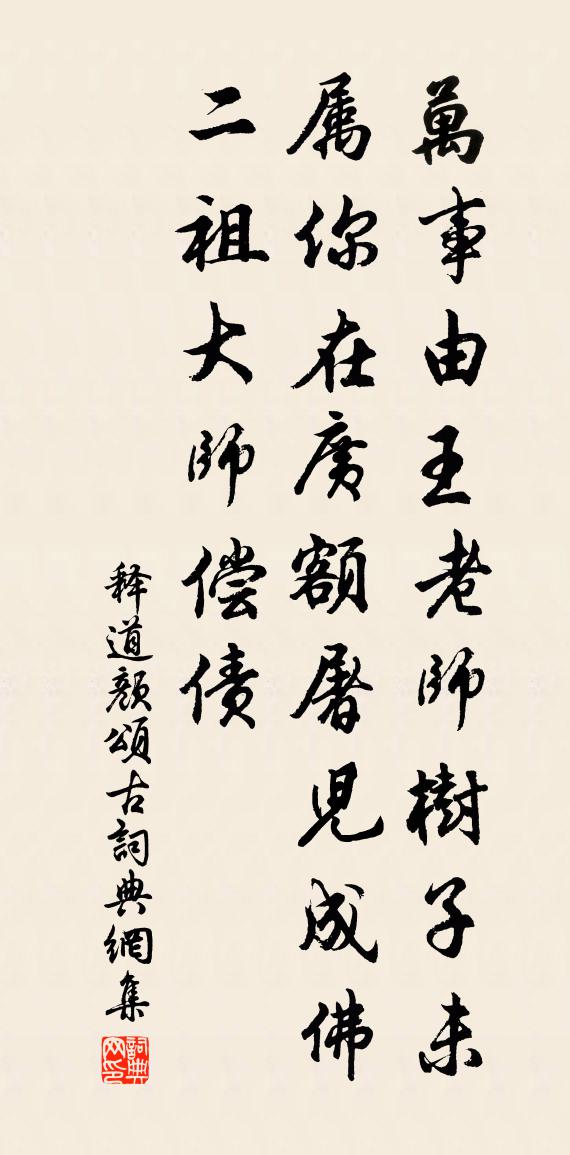 萬事由王老師樹子未
属你在廣額屠兒成佛
二祖大師偿债
释道颜頌古詞典網集
詞典网印